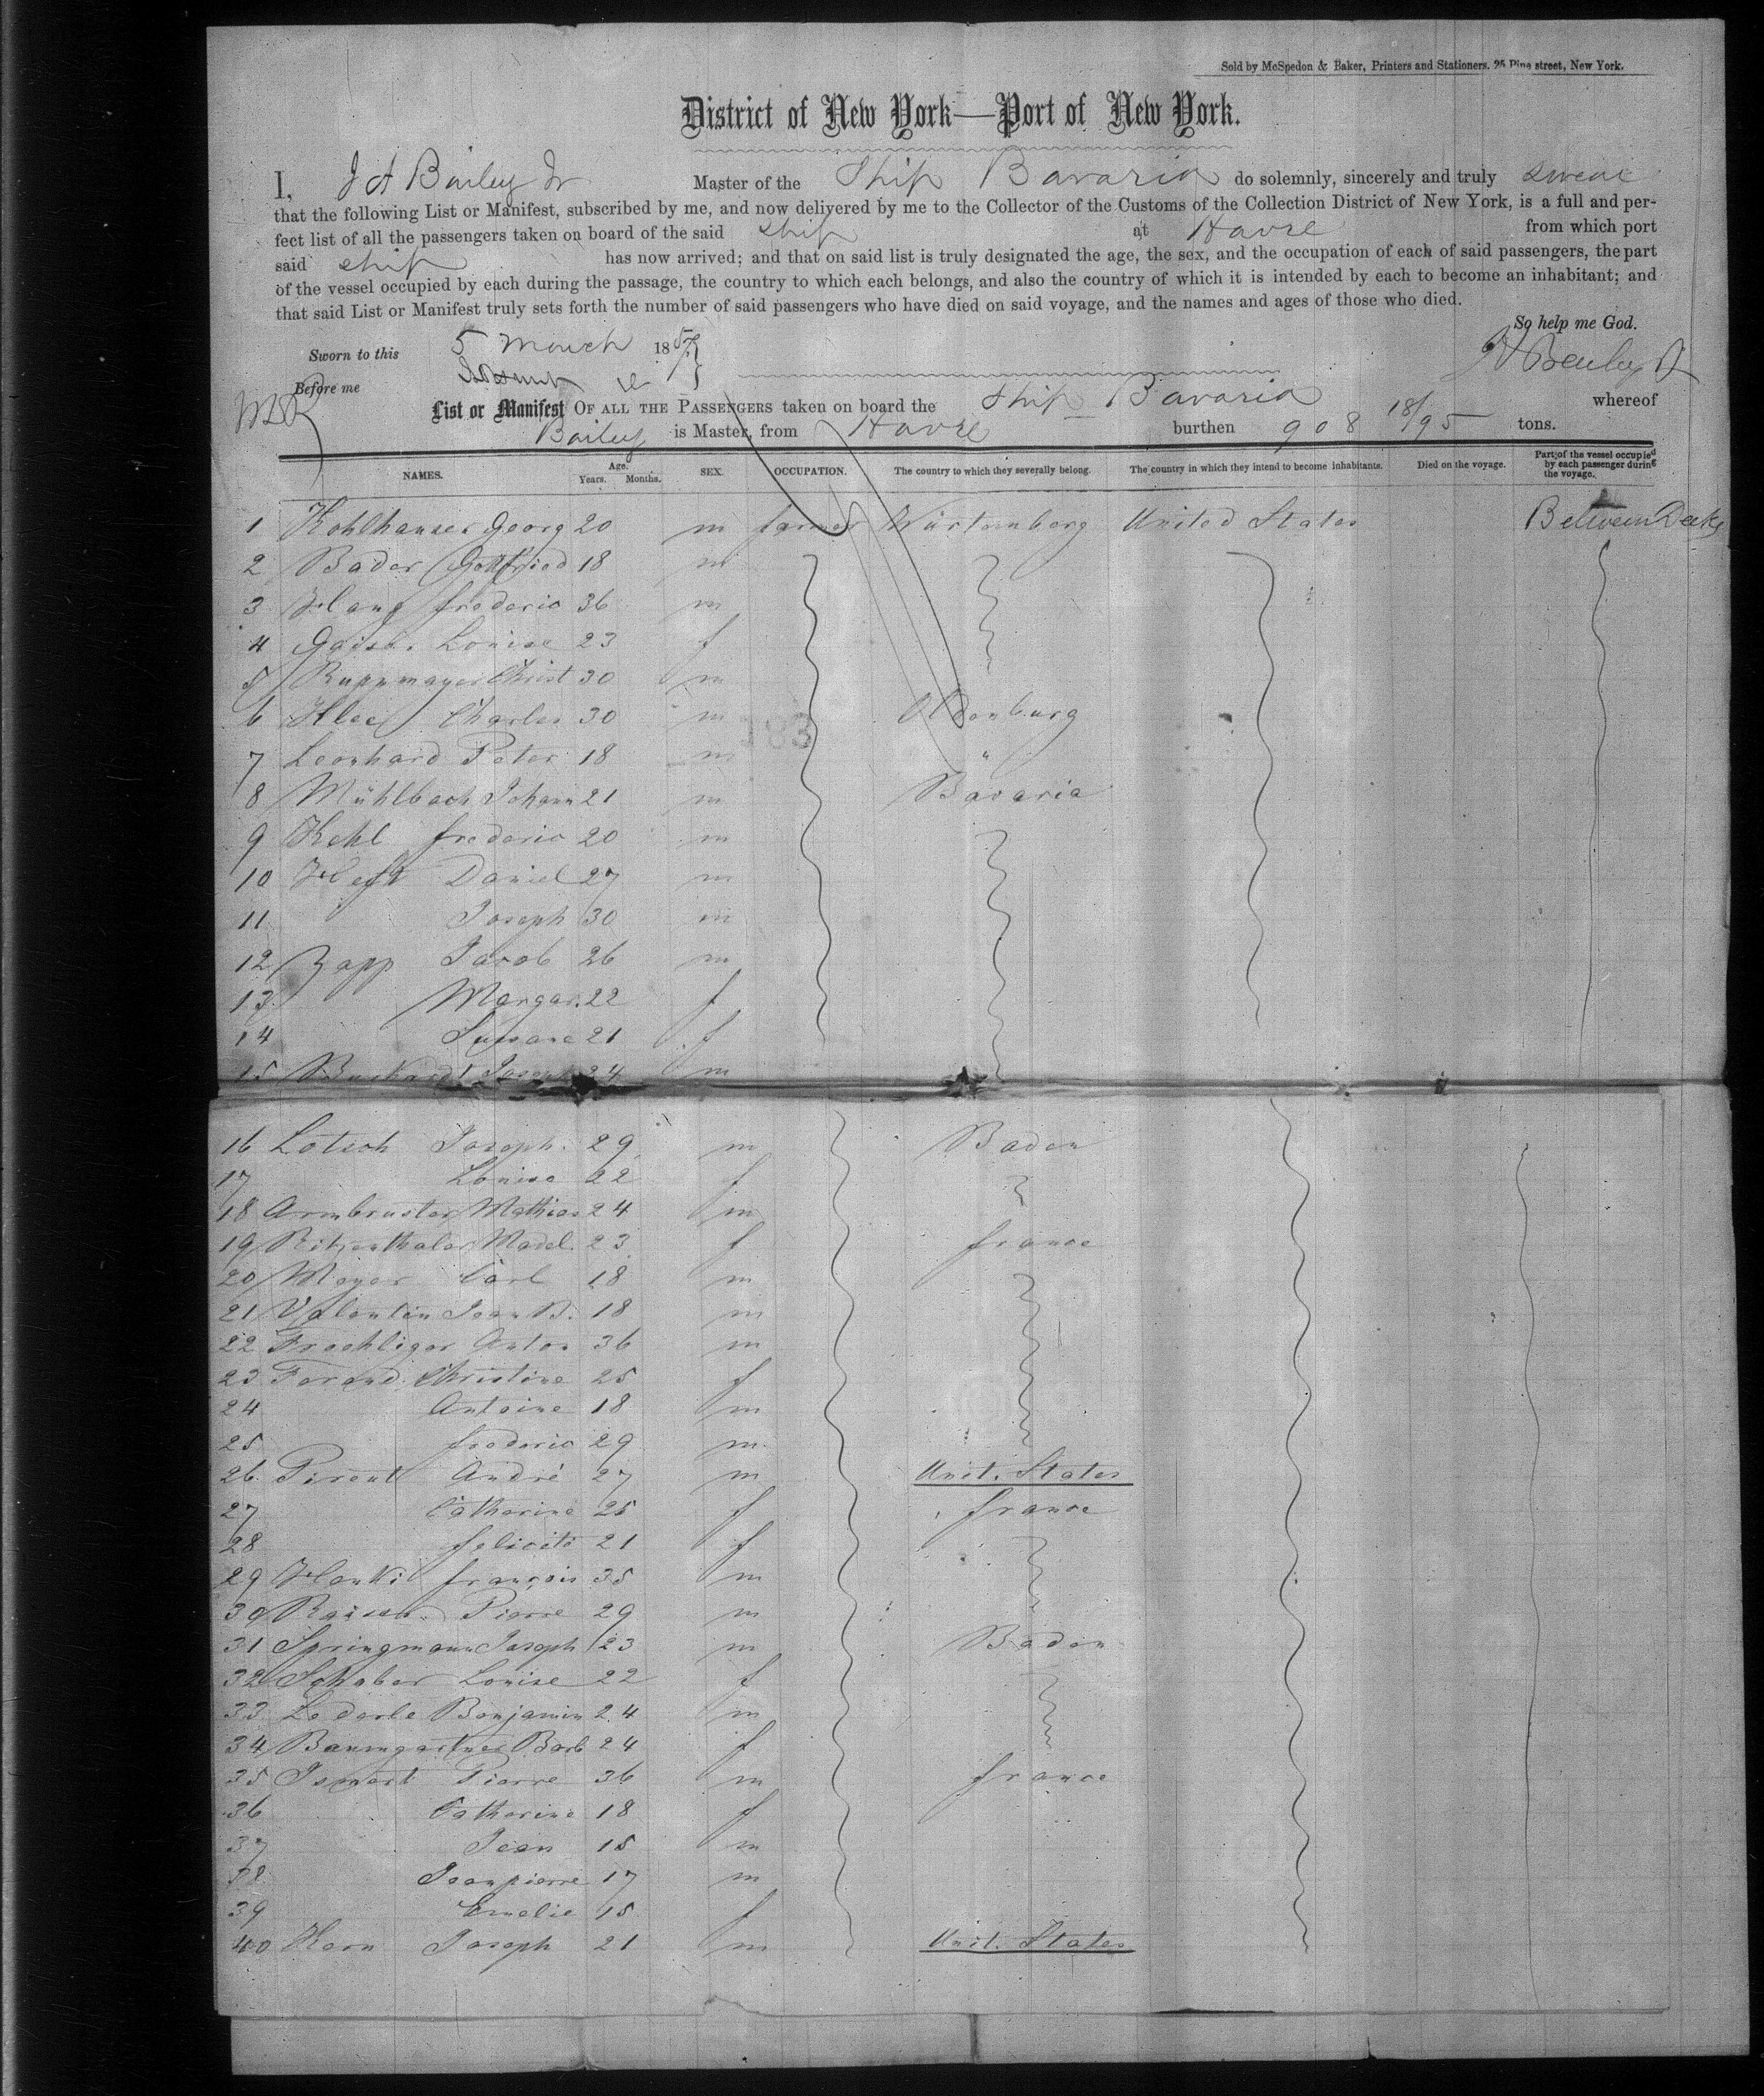 Sold by McSpedon & Baker, Printers and Stationers. 25 Pine street, New York.
District of New York—Port of New York.
I, J A Bailey Jr Master of the Ship Bavaria do solemnly, sincerely and truly swear
that the following List or Manifest, subscribed by me, and now delivered by me to the Collector of the Customs of the Collection District of New York, is a full and per-
fect list of all the passengers taken on board of the said ship at Havre from which port
said ship has now arrived; and that on said list is truly designated the age, the sex, and the occupation of each of said passengers, the part
of the vessel occupied by each during the passage, the country to which each belongs, and also the country of which it is intended by each to become an inhabitant; and
that said List or Manifest truly sets forth the number of said passengers who have died on said voyage, and the names and ages of those who died.
So help me God.
Sworn to this 5 March 185
J A Bailey Jr
Before me
List or Manifest OF ALL THE PASSENGERS taken on board the Ship Bavaria whereof
Bailey is Master, from Havre burthen 908 18/95 tons.
NAMES. Age. Years. Months. SEX. OCCUPATION. The country to which they severally belong. The country in which they intend to become inhabitants. Died on the voyage. Part of the vessel occupied by each passenger during the voyage.
1 Kohlhauser Georg 20 m farmer Würtemberg United States Between Decks
2 Bader Gottfried 18 m
3 Haug frederic 36 m
4 Louise 23 f
5 Ruppmayer Christ 30 m
6 Klee Charles 30 m Oldenburg
7 Leonhard Peter 18 m "
8 Mühlbach Johann 21 m Bavaria
9 Kehl frederic 20 m
10 Heft Daniel 27 m
11 Joseph 30 m
12 Zapp Jacob 26 m
13 Margar. 22 f
14 Susane 21 f
15 Burkardt Joseph 24 m
16 Lotsch Joseph. 29 m Baden
17 Louise 22 f
18 Armbruster Mathias 24 m
19 Ritzenthaler Madel. 23 f france
20 Meyer Carl 18 m
21 Valentin Jean B. 18 m
22 Froehliger Anton 36 m
23 Ferand Christine 25 f
24 Antoine 18 m
25 frederic 29 m
26 Pirent André 27 m Unit. States
27 Catherine 25 f france
28 felicité 21 f
29 Hanki françois 35 m
30 Pierre 29 m
31 Springmann Joseph 23 m Baden
32 Schaber Louise 22 f
33 Lederle Benjamin 24 m
34 Baumgartner Barb 24 f
35 Pierre 36 m france
36 Catherine 18 f
37 Jean 15 m
38 Jeanpierre 17 m
39 Emelie 15 f
40 Kern Joseph 21 m Unit. States